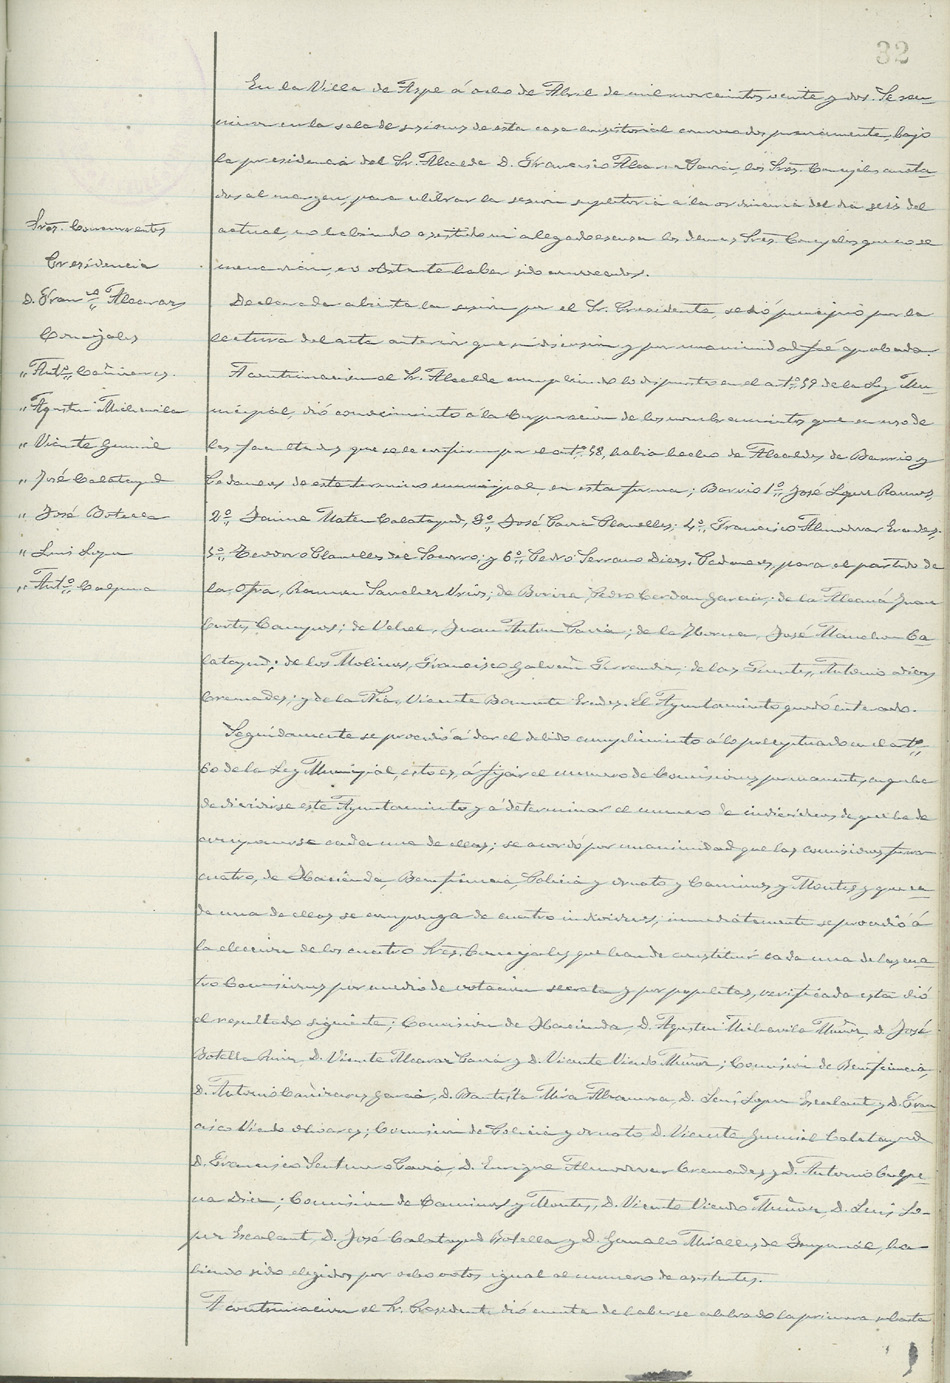 32
En la Villa de Aspe á ocho de Abril de mil novecientos veinte y dos. Se reu-
nieron en la sala de sesiones de esta casa consistorial convocados previamente, bajo
la presidencia del Sr. Alcalde D. Francisco Alcaraz Pavía, los Sres. Concejales anota
dos al margen, para celebrar la sesión supletoria a la ordinaria del día seis del
actual, no habiendo asistido ni alegado escusa los demas Sres. Concejales que no se
mencionan, no obstante haber sido convocados.
Sres. Concurrentes
Presidencia
D. Franco Alcaraz
Concejales
" Anto Cañizares.
" Agustin Milavila
" Vicente Gumiel
" José Calatayud
" José Botella
" Luis Lopez
" Anto Calpena
Declarada abierta la sesión por el Sr. Presidente, se dió principio por la
lectura del acta anterior que sin discusion y por unanimidad fué aprobada.
A continuacion el Sr. Alcalde cumpliendo lo dispuesto en el arto 59 de la Ley Mu-
nicipal, dió conocimiento a la Corporacion de los nombramientos que en uso de
las facultades que se le confieren por el arto 58, había hecho de Alcaldes de Barrio y
Pedaneos de este termino municipal, en esta forma; Barrio 1o José Lopez Ramos,
2o Jaime Mateu Calatayud, 3o José Pavía Planelles; 4o Francisco Almodovar Cremades;
5o Teodoro Planelles de Socorro; y 6o Pedro Serrano Diez. Pedaneos, para el partido de
la Ofra, Ramon Sanchez Urios; de Pedro Cerdan Garcia; de la Alcaná Juan
Cortes Campos; de Juan Anton Pavia; de la Horna, José Manchon Ca-
latayud; de los Molinos, Francisco Galvañ Ferrandez; de las Fuentes, Antonio
Cremades; y de la Nía, Vicente Bonmati El Ayuntamiento quedó enterado.
Seguidamente se procedió á dar el debido cumplimiento á lo preceptuado en el arto
60 de la Ley Municipal, esto es, á fijar el numero de Comisiones permanentes en que ha
de dividirse este Ayuntamiento y á determinar el numero de individuos de que ha de
componerse cada una de ellas; se acordó por unanimidad que las comisiones fueran
cuatro, de Hacienda, Beneficencia, Policia y ornato y Caminos y Montes y que ca-
da una de ellas se componga de cuatro individuos, inmediatamente se procedió á
la eleccion de los cuatro Sres. Concejales que han de constituir cada una de las cua-
tro Comisiones por medio de votacion secreta y por papeletas, verificada esta dió
el resultado siguiente; Comision de Hacienda, D. Agustin Milavila Muñoz, D. José
Botella Ruiz D. Vicente Alcaraz Pavía y D. Vicente Vicedo Muñoz; Comisión de Beneficencia,
D. Antonio Cañizares Garcia, D. Bautista Mira Abramea, D. Luis Lopez Escolant y D. Fran
cisco Vicedo Alvarez; Comision de Policia y ornato D. Vicente Gumiel Calatayud
D. Francisco Pavía, D. Enrique Almodovar Cremades y D. Antonio Calpe-
na Diez; Comision de Caminos y Montes, D. Vicente Vicedo Muñoz, D. Luis Lo-
pez Escolant, D. José Calatayud Botella y D. Gonzalo Miralles de Imperial, ha-
biendo sido elegidos por ocho votos igual al numero de asistentes.
A continuacion el Sr. Presidente dió cuenta de haberse celebrado la primera subasta